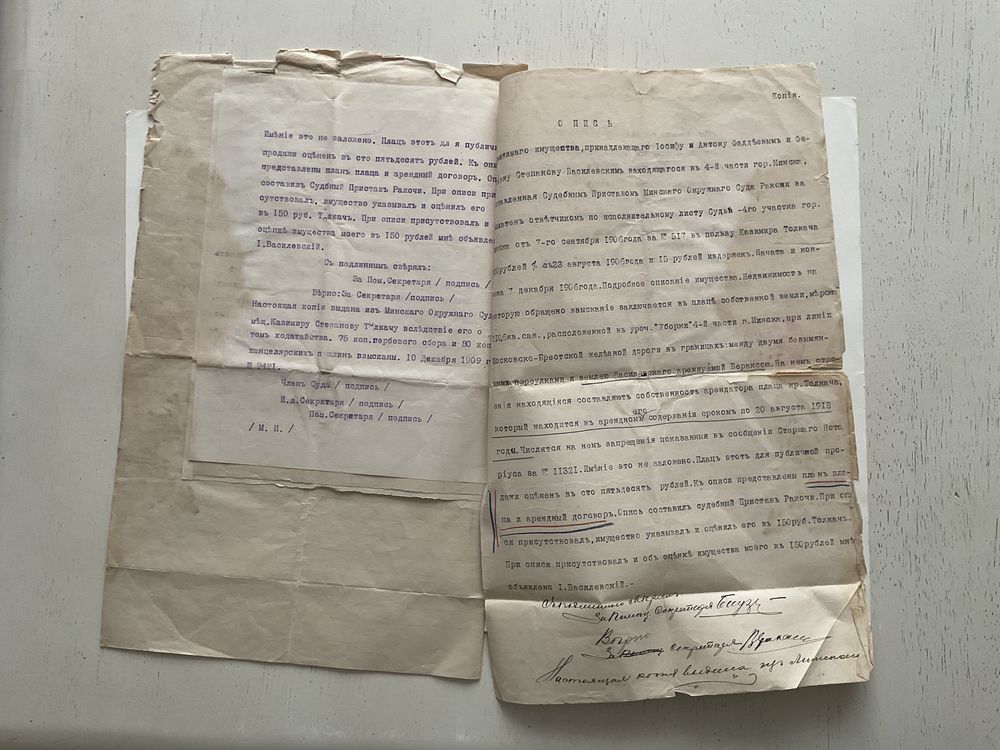 Имѣніе это не заложено. Плацъ этотъ дл я публич
продажи оцѣненъ въ сто пятьдесятъ рублей. Къ опи
представлены планъ плаца и арендный договоръ. Оп
составилъ Судбный Приставъ Ракочи. При описи при
сутствовалъ, имущество указывалъ и оцѣнилъ его
въ 150 руб. Толкачъ. При описи присутствовалъ и
оцѣнкѣ имущества моего въ 150 рублей мнѣ объявле
I.Василевскій.
Съ подлиннымъ свѣрялъ:
За Пом.Секретаря / подпись /
Вѣрно:За Секретаря /подпись /
Настоящая копія выдана изъ Минскаго Окружнаго Су
мѣщ.Казимиру Степанову Толкачу вслѣдствіе его о
томъ ходатайства. 75 коп.гербового сбора и 80 коп
канцелярскихъ п шлинъ взысканы. 10 Декабря 1909 г
№ 9421.
Членъ Суда / подпись /
И.д.Секрѣтаря / подпись /
Пом.Секрѣтаря / подпись /
/ М. П. /
Копія.
О П И С Ь
имаго имущества,принадлежащаго Іосифу и Антону Фаддѣевымъ и Фе-
Степанову Василевскимъ находящагося въ 4-й части гор.Минска,
тавленная Судебнымъ Приставомъ Минскаго Окружнаго Суда Ракочи за
отвѣтчикомъ по исполнительному листу Судьи -4го участка гор.
нска отъ 7-го сентября 1906года за № 517 въ пользу Казимира Толкача
рублей съ23 августа 1906года и 15 рублей издержекъ.Начата и кон-
на 7 декабря 1906года.Подробное описаніе имущества.Недвижимость на
торую обращено взысканіе заключается въ плацѣ собственной земли,мѣрою
кв.саж.,расположенной въ уроч."Уборки"4-й части г.Минска,при линіи
осковско-Брестской желѣзной дороги въ границахъ:между двумя безымян-
ными переулками и землею Василевскаго арендуемой Бераксою.На немъ стро-
енія находящіяся составляютъ собственность арендатора плаца кр.Толкача,
который находится въ арендномъ его содержаніи срокомъ по 20 августа 1918
года.Числятся на немъ запрещенія показанныя въ сообщеніи Старшаго Нота
ріуса за № 11321.Имѣніе это не заложено.Плацъ этотъ для публичной про-
дажи оцѣненъ въ сто пятьдесятъ рублей.Къ описи представлены планъ пла-
ца и арендный договоръ.Опись составилъ судебный Приставъ Ракочи.При оп
си присутствовалъ,имущество указывалъ и оцѣнилъ его въ 150руб.Толкачъ.
При описи присутствовалъ и объ оцѣнкѣ имущества моего въ 150рублей мнѣ
объявлено I.Василевскій.-
За Помощ Секретаря
Вѣрно:
За секретаря
Настоящая копія выдана изъ Минскаго